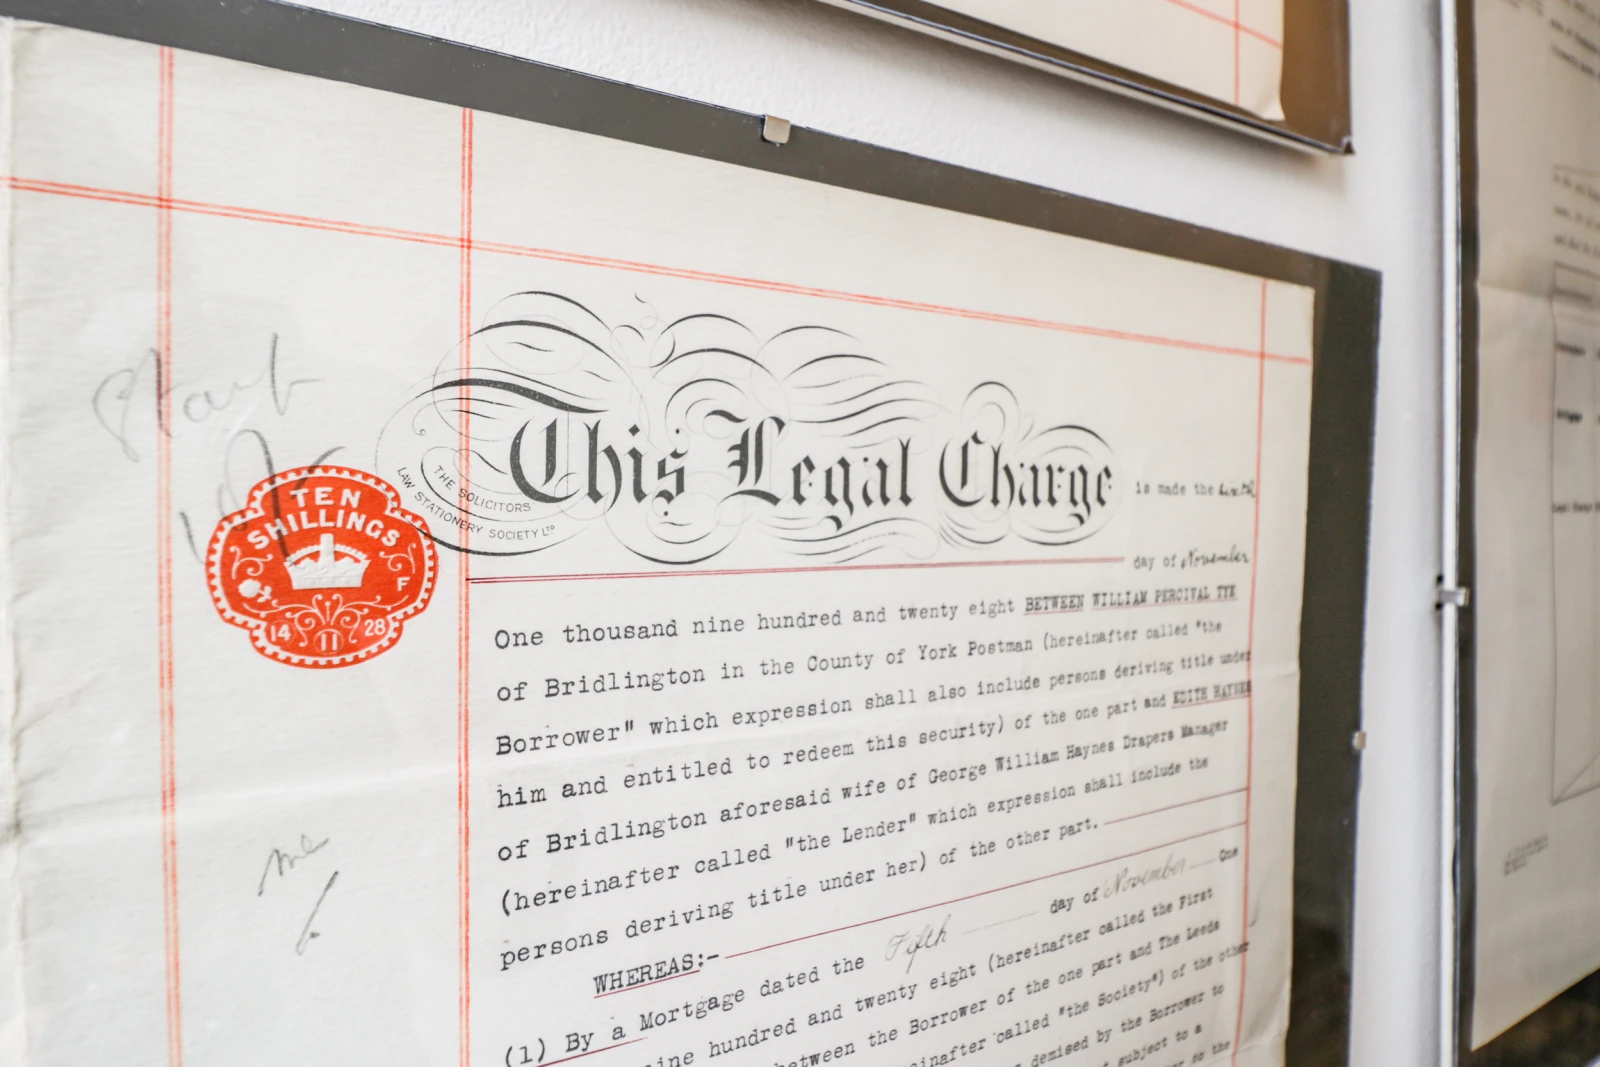 Stamp
10/-
TEN
SHILLINGS
F
14 11 28
THE SOLICITORS
LAW STATIONERY SOCIETY LTD
This Legal Charge is made the
day of November
One thousand nine hundred and twenty eight BETWEEN WILLIAM PERCIVAL TYE
of Bridlington in the County of York Postman (hereinafter called "the
Borrower" which expression shall also include persons deriving title under
him and entitled to redeem this security) of the one part and EDITH HAYNES
of Bridlington aforesaid wife of George William Haynes Drapers Manager
(hereinafter called "the Lender" which expression shall include the
persons deriving title under her) of the other part.
WHEREAS:-
(1) By a Mortgage dated the Fifth day of November One
nine hundred and twenty eight (hereinafter called the First
between the Borrower of the one part and The Leeds
called "the Society") of the other
demised by the Borrower to
subject to a
so the